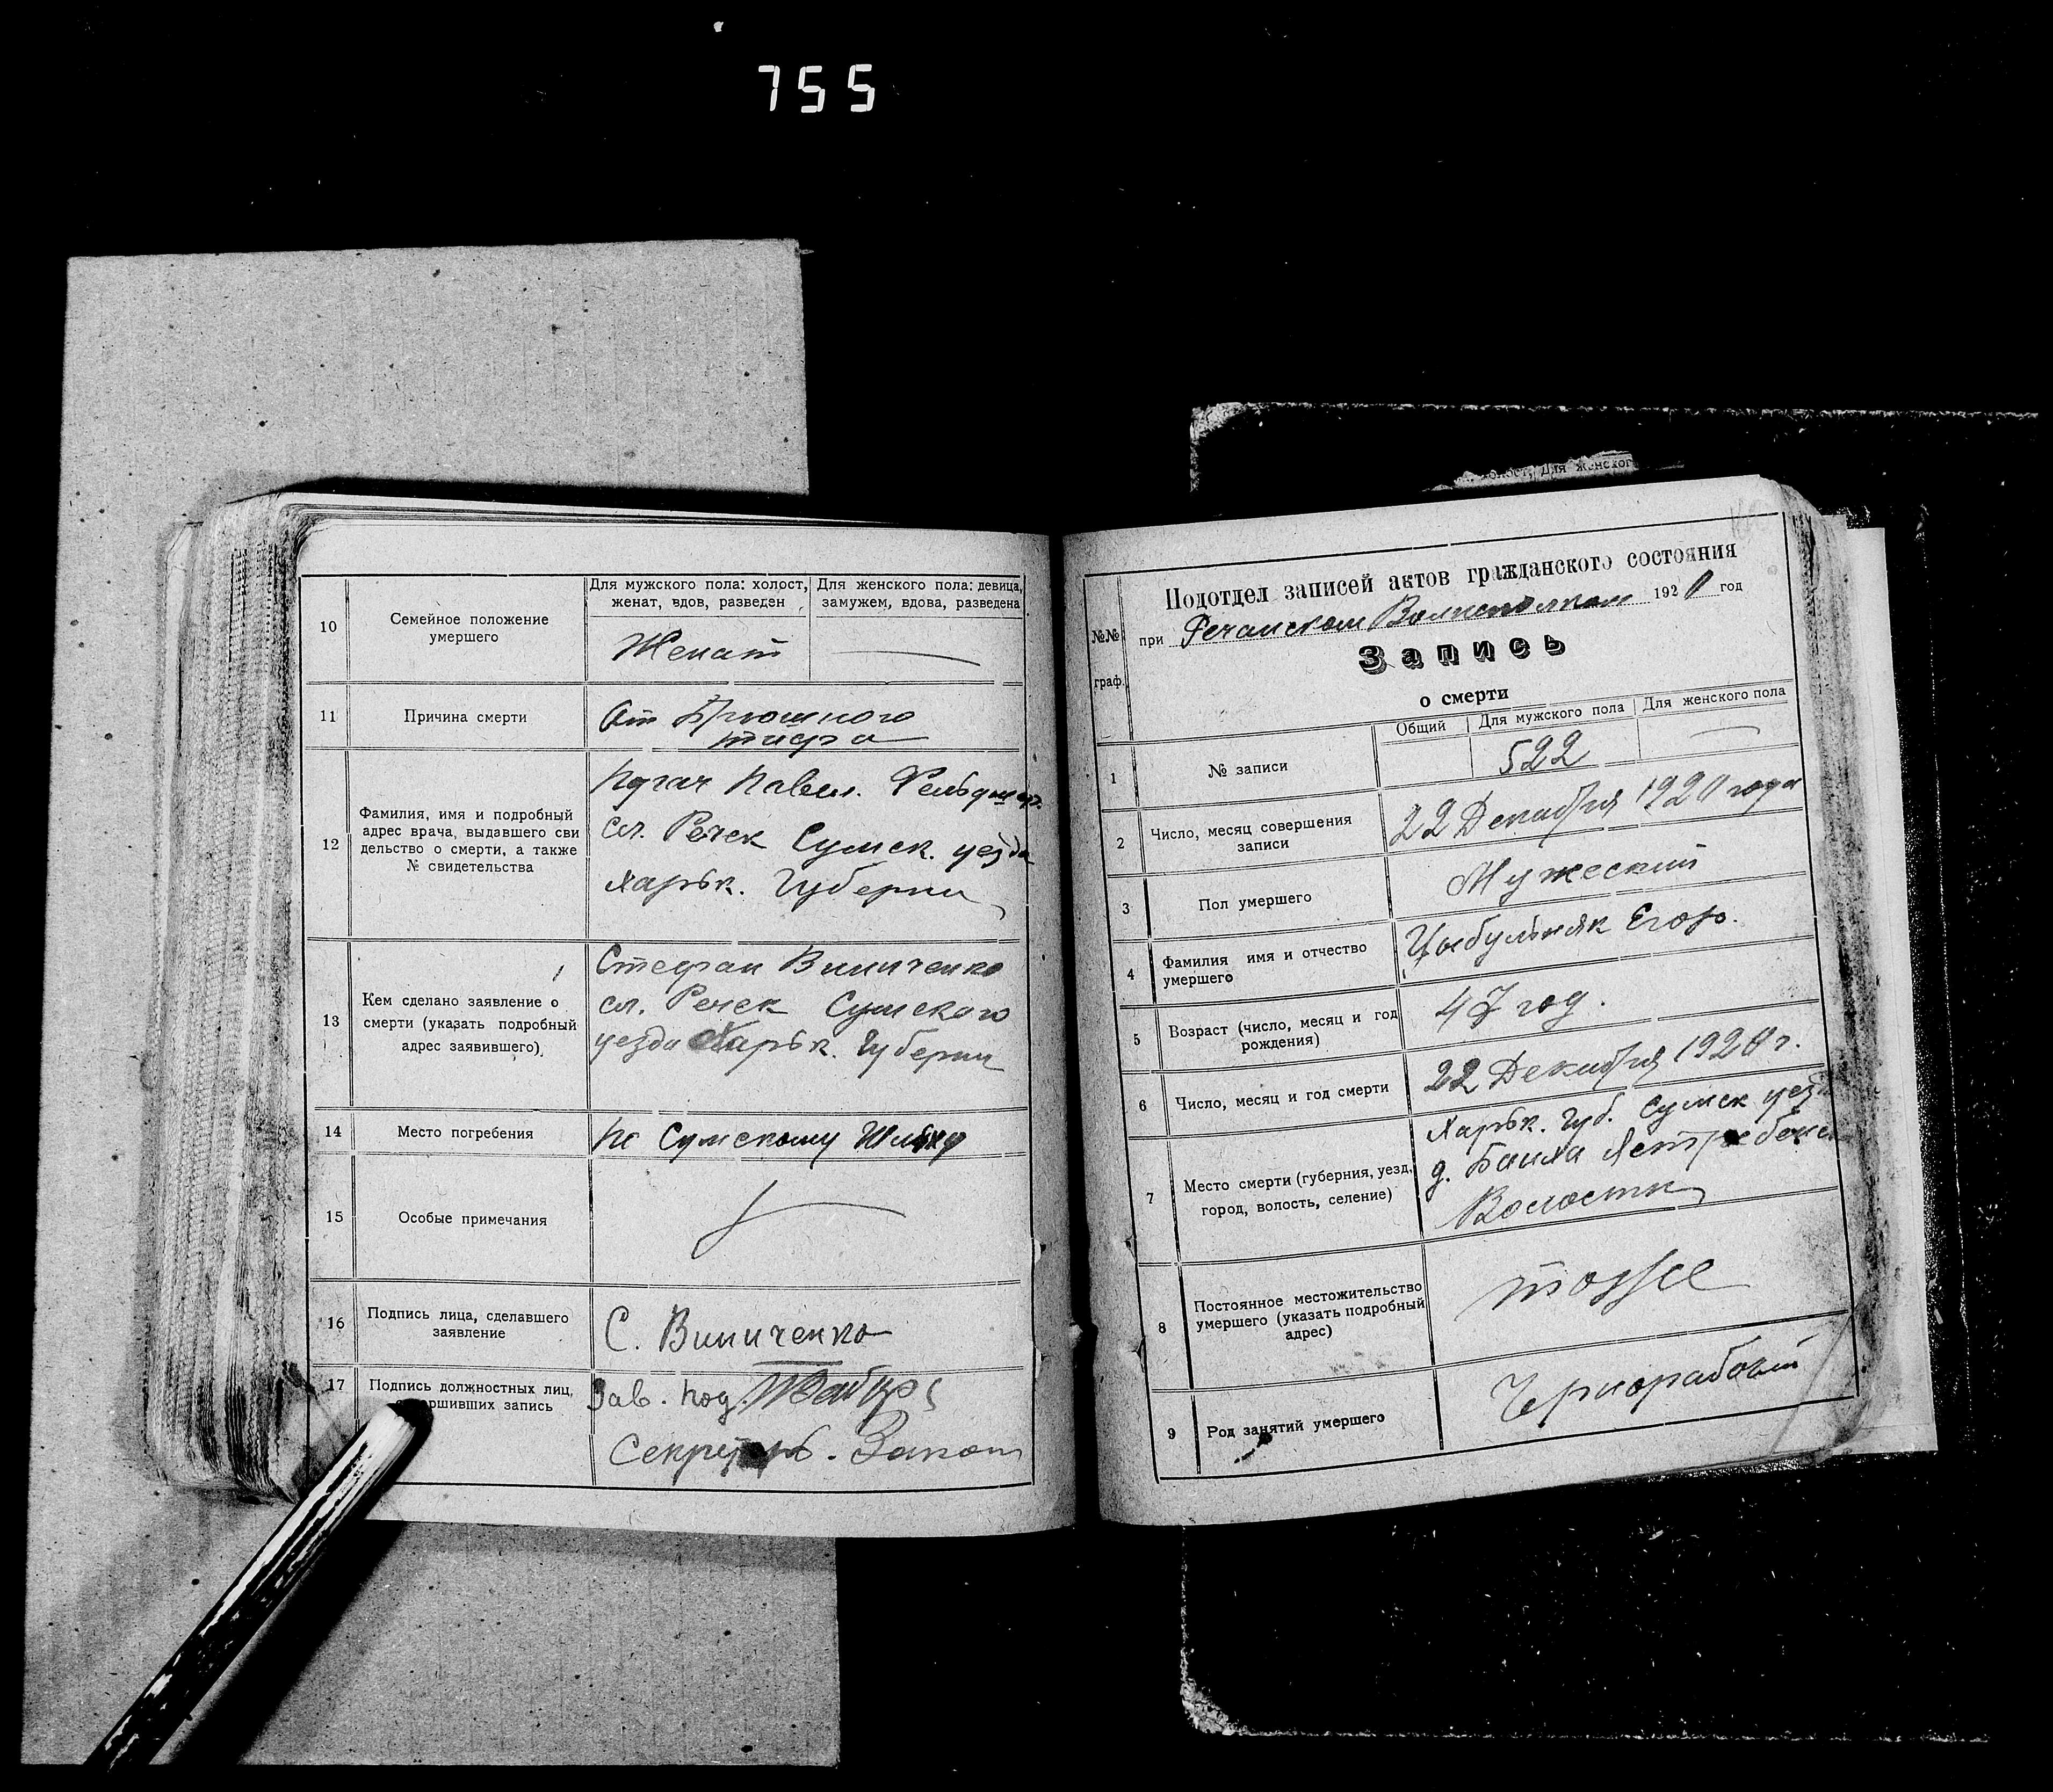 755
10
Семейное положение
умершего
Для мужского пола: холост,
женат, вдов, разведен
Для женского пола: девица,
замужем, вдова, разведена
Женат
11
Причина смерти
От Брюшного
тифа
12
Фамилия, имя и подробный
адрес врача, выдавшего сви
дельство о смерти, а также
№ свидетельства
Павел. Фельдшер.
сл. Речек Сумск. уезда
Харьк. Губерни
13
Кем сделано заявление о
смерти (указать подробный
адрес заявившего)
Стефан Виниченко
сл. Речек Сумского
уезда Харьк. Губерни
14
Место погребения
по Сумскому Шляху
15
Особые примечания
16
Подпись лица, сделавшего
заявление
С. Виниченко
17
Подпись должностных лиц,
совершивших запись
Зав. Под.
Секретарь.
Для женског
Подотдел записей актов гражданского состояния
при Речанском Волисполкоме 1920 год
№№
граф.
Запись
о смерти
Общий
Для мужского пола
Для женского пола
1
№ записи
522
2
Число, месяц совершения
записи
22 Декабря 1920 года
3
Пол умершего
Мужеский
4
Фамилия имя и отчество
умершего
Цыбульняк Егор.
5
Возраст (число, месяц и год
рождения)
47 год.
6
Число, месяц и год смерти
22 Декабря 1920 г.
7
Место смерти (губерния, уезд,
город, волость, селение)
Харьк. Губ. Сумск уезда
д.
Волости
8
Постоянное местожительство
умершего (указать подробный
адрес)
тоже
9
Род занятий умершего
Чернорабочий